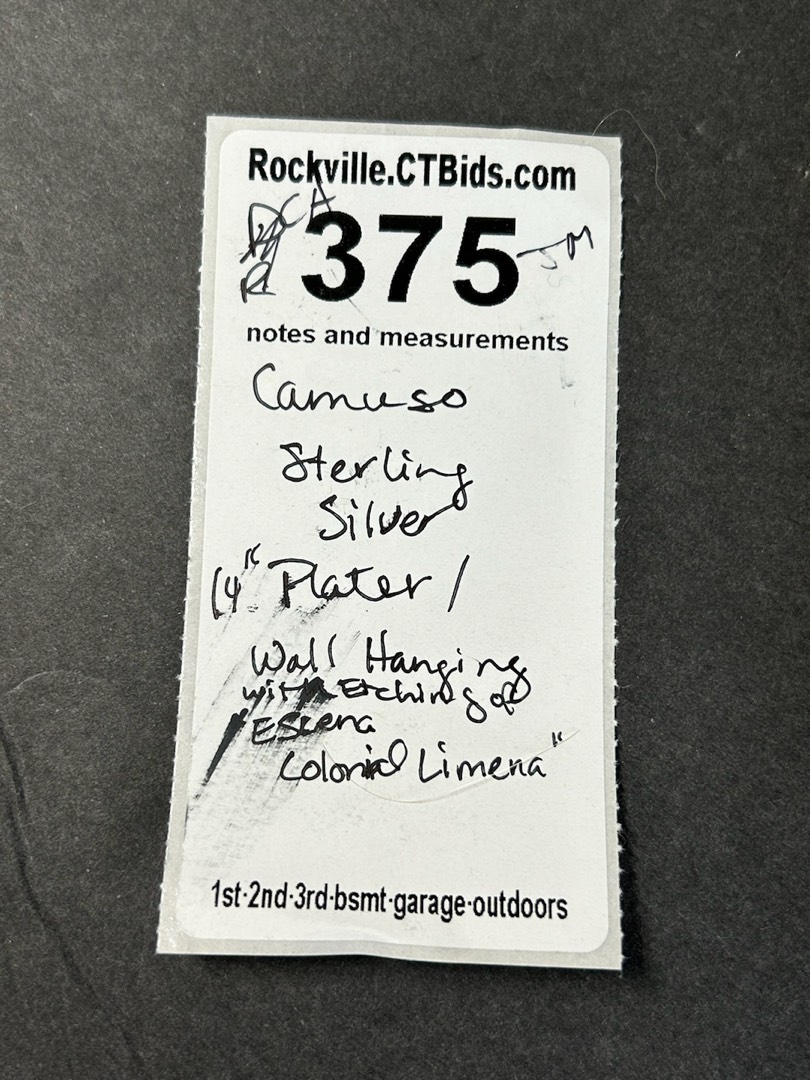 Rockville.CTBids.com
CA
R
375
JM
notes and measurements
Camuso
Sterling
Silver
14" Plater /
Wall Hanging
with Etching of
"Escena
Colonial Limena"
1st·2nd·3rd·bsmt·garage·outdoors